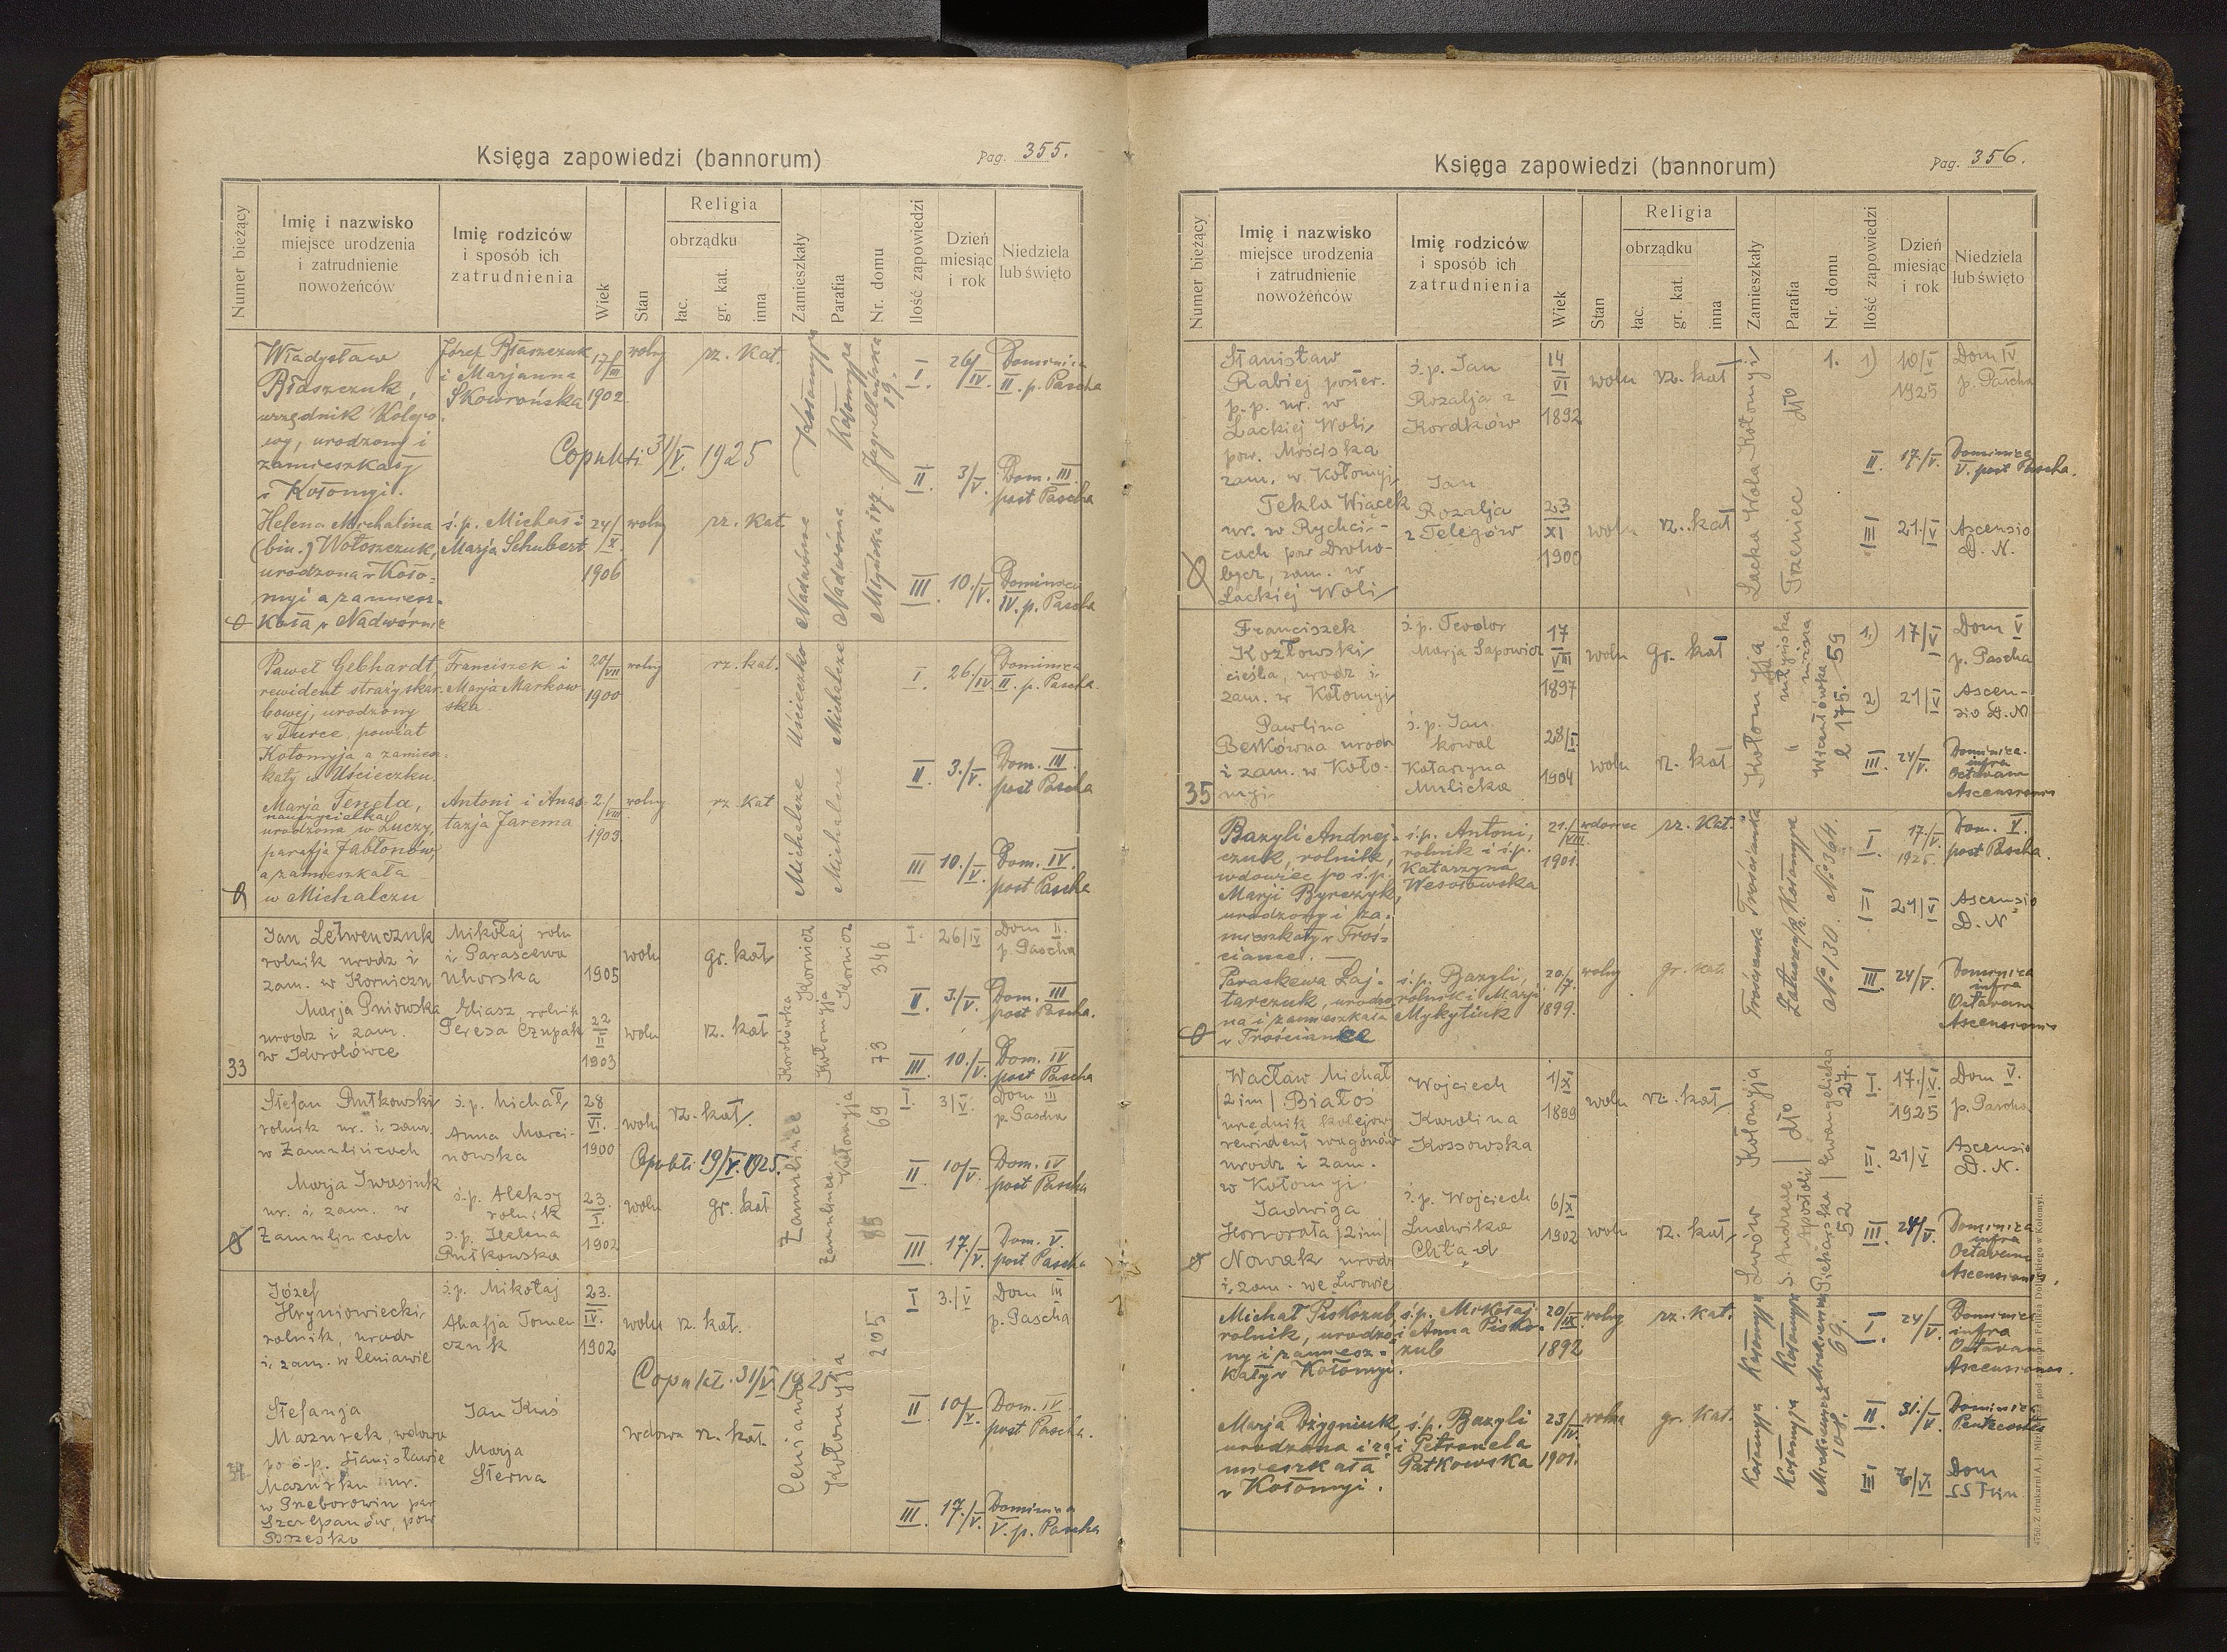 Księga zapowiedzi (bannorum)
Pag. 355.
Numer bieżący
Imię i nazwisko
miejsce urodzenia
i zatrudnienie
nowożeńców
Imię rodziców
i sposób ich
zatrudnienia
Wiek
Stan
Religia
obrządku
łac.
gr. kat.
inna
Zamieszkały
Parafia
Nr. domu
Ilość zapowiedzi
Dzień
miesiąc
i rok
Niedziela
lub święto
Władysław
Błaszczuk,
urzędnik kolejo-
wy, urodzony i
zamieszkały
w Kołomyi.
Józef Błaszczuk
i Marjanna
Skowrońska
17/III
1902
wolny
rz. kat.
Copulati 31/V. 1925
Kołomyja
Kołomyja
Jagiellońska
19.
I. 26/IV. Dominica
II. p. Pascha
II. 3/V. Dom. III.
post Pascha
III. 10./V. Dominica
IV. p. Pascha
Helena Michalina
(bin.) Wołoszczuk,
urodzona w Koło-
myi a zamiesz-
kała w Nadwórnie
ś.p. Michał i
Marja Schubert
24/X.
1906
wolny
rz. kat.
Nadwórna
Nadwórna
Paweł Gebhardt,
rewident straży skar-
bowej, urodzony
w Turce, powiat
Kołomyja a zamiesz-
kały w Uścieczku.
Franciszek i
Marja Markow-
ska
20/VII
1900
wolny
rz. kat.
Uścieczko
Michalcze
I. 26./IV. Dominica
II. p. Pascha.
II. 3./V. Dom. III.
post Pascha
III. 10./V. Dom. IV.
post Pascha
Marja Teneta,
nauczycielka
urodzona w Łuczy,
parafja Jabłonów,
a zamieszkała
w Michalczu
Antoni i Anas-
tazja Jarema
2./VIII.
1903.
wolny
rz. kat
Michalcze
Michalcze
33
Jan Letwenczuk
rolnik urodz i
zam. w Korniczu
Mikołaj roln
i Parascewa
Uhorska
1905
woln
gr. kat
Kornicz
Kornicz
346
I. 26/IV Dom II.
p. Pascha
II. 3./V. Dom. III
post Pascha.
III. 10./V. Dom. IV
post Pascha
Marja Pniowska
urodz i zam.
w Korolówce
Eliasz, rolnik
Teresa Czupak
22
III
1903
woln
rz. kat
Korolówka
Kołomyja
73
Stefan Rutkowski
rolnik ur. i zam.
w Zamulińcach
ś.p. Michał,
Anna Marci-
nowska
28
VI.
1900
woln
rz. kat.
Copulati 19/V. 1925.
Zamulińce
Kołomyja
69
I. 3/V. Dom III
p. Pascha
II 10/V. Dom. IV
post Pascha
III. 17./V. Dom. V.
post Pascha
Marja Iwasiuk
ur. i, zam. w
Zamulińcach
ś.p. Aleksy
rolnik
ś.p. Helena
Rutkowska
23.
I.
1902
woln
gr. kat
Zamulińce
Józef
Hryniowiecki,
rolnik, urodz
i, zam. w Ceniawie
ś.p. Mikołaj
Ahafja Tomen
czuk
23.
IV.
1902
woln
rz. kat.
Copulati. 31/V. 1925
Ceniawa
Kołomyja
205
I 3./V Dom III
p. Pascha
II 10/V. Dom. IV.
post Pascha.
III. 17./V. Dominica
V. p. Pascha
34
Stefanja
Mazurek, wdowa
po ś.p. Stanisławie
Mazurku ur.
w Przeborowiu par
Szczepanów, pow
Brzesko
Jan Kuś
Marja
Sterna
wdowa
rz. kat.
Księga zapowiedzi (bannorum)
Pag. 356.
Numer bieżący
Imię i nazwisko
miejsce urodzenia
i zatrudnienie
nowożeńców
Imię rodziców
i sposób ich
zatrudnienia
Wiek
Stan
Religia
obrządku
łac.
gr. kat.
inna
Zamieszkały
Parafia
Nr. domu
Ilość zapowiedzi
Dzień
miesiąc
i rok
Niedziela
lub święto
Stanisław
Rabiej poster.
p.p. ur. w
Lackiej Woli,
pow. Mościska
zam. w Kołomyi,
ś.p. Jan
Rozalja z
Kordków
14
VI
1892
woln
rz. kat
Lacka Wola Kołomyji
Trzeniec
dto
1.
1) 10/V
1925
Dom IV
p. Pascha
II. 17./V. Dominica
V. post Pascha.
III 21./V Ascensio
D. N.
Tekla Wiącek
ur. w Rychci-
cach pow Droho-
bycz, zam. w
Lackiej Woli
Jan
Rozalja
z Telegów
23
XI
1900
woln
rz. kat
35
Franciszek
Kozłowski,
cieśla, urodz i
zam. w Kołomyi,
ś.p. Teodor
Marja Sapowicz
17
VIII
1897
woln
gr. kat
Kołomyja
młyńska
niższa
Wincentówka
l 175. 59
1.) 17/V Dom V
p. Pascha
2) 21/V Ascen-
sio D. N
III. 24/V. Dominica
infra
Octavam
Ascensionis
Pawlina
Berkówna urodz
i zam. w Koło-
myi
ś.p. Jan
kowal
Katarzyna
Mulicka
28/I.
1904
woln
rz. kat
Bazyli Andrej-
czuk, rolnik,
wdowiec po ś.p.
Marji Byrczyk,
urodzony i za-
mieszkały w Troś-
ciańcu. —
ś.p. Antoni,
rolnik i ś.p.
Katarzyna
Wesołowska
21./VIII.
1901.
wdowiec
rz. kat.
Trościanka
Kołomyja
No 130. No 364.
I. 17./V.
1925.
Dom. V.
post Pascha.
II 21/V Ascensio
D. N.
III 24/V. Dominica
infra
Octavam
Ascensionis
Paraskewa Łaj-
tarczuk, urodzo-
na i zamieszkała
w Trościance
ś.p. Bazyli,
rolnik i Marja
Mykytiuk
20/7.
1899.
wolny
gr. kat.
Wacław Michał
/2im/ Białoś
urzędnik kolejowy
rewident wagonów
urodz i zam.
w Kołomyi.
Wojciech
Karolina
Kossowska
1/XI
1899
woln
rz. kat,
Kołomyja
dto
Ewangelicka
27.
I. 17./V.
1925
Dom V.
p. Pascha
II. 21/V Ascensio
D. N.
III. 24/V. Dominica
infra
Octavam
Ascensionis.
Jadwiga
Honorata /2im/
Nowak urodz
i, zam. we Lwowie
ś.p. Wojciech
Ludwika
Chład
6/X
1902
woln
rz. kat,
Lwów
S. Andreae
Apostoli
Piekarska
52
Michał Piskozub,
rolnik, urodzo-
ny i zamiesz-
kały w Kołomyi.
ś.p. Mikołaj
i Anna Pisko-
zub
20/IX.
1892
wolny
rz. kat.
Kołomyja
Kołomyja
69.
I. 24/V. Dominica
infra
Octavam
Ascensionis.
II 31./V. Dominica
Pentecostes
III 7/VI Dom
SSTrin.
Marja Dżygniuk,
urodzona i za-
mieszkała
w Kołomyi.
ś.p. Bazyli
i Petronela
Patkowska
23/IV.
1901.
wolna
gr. kat.
Kołomyja
Kołomyja
108.